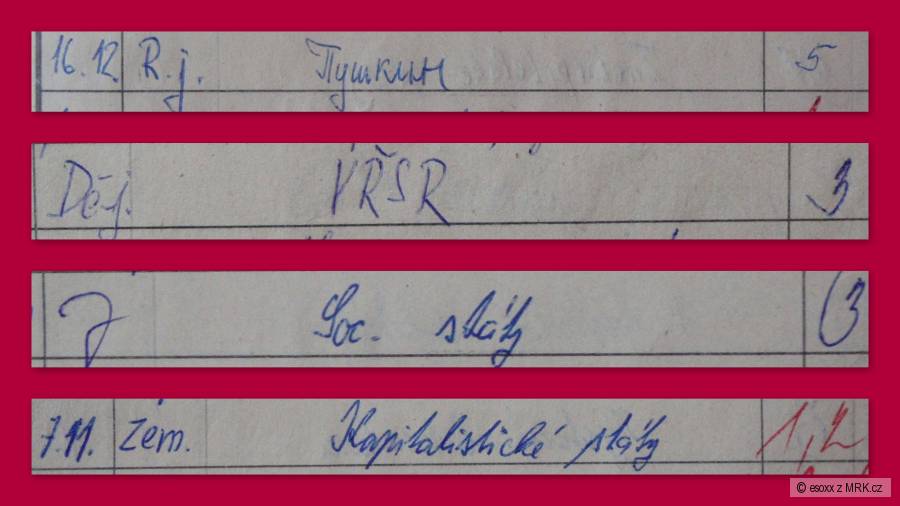 16.12. R.j. Пушкин 5
Děj. VŘSR 3
Z Soc. státy 3
7.11. Zem. Kapitalistické státy 1,2
© esoxx z MRK.cz